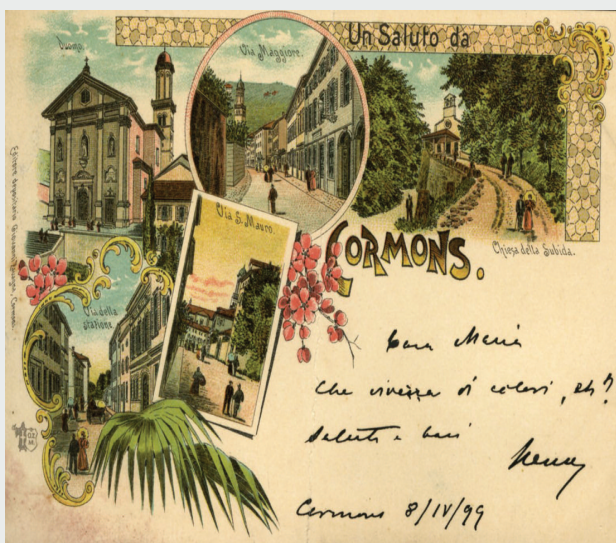 Un Saluto da
CORMONS.
Duomo.
Via Maggiore.
Chiesa della Subida.
Via S. Mauro.
Via della
stazione.
Cara Maria
Che vivezza di colori, eh?
Saluti e baci
Cormons 8/IV/99